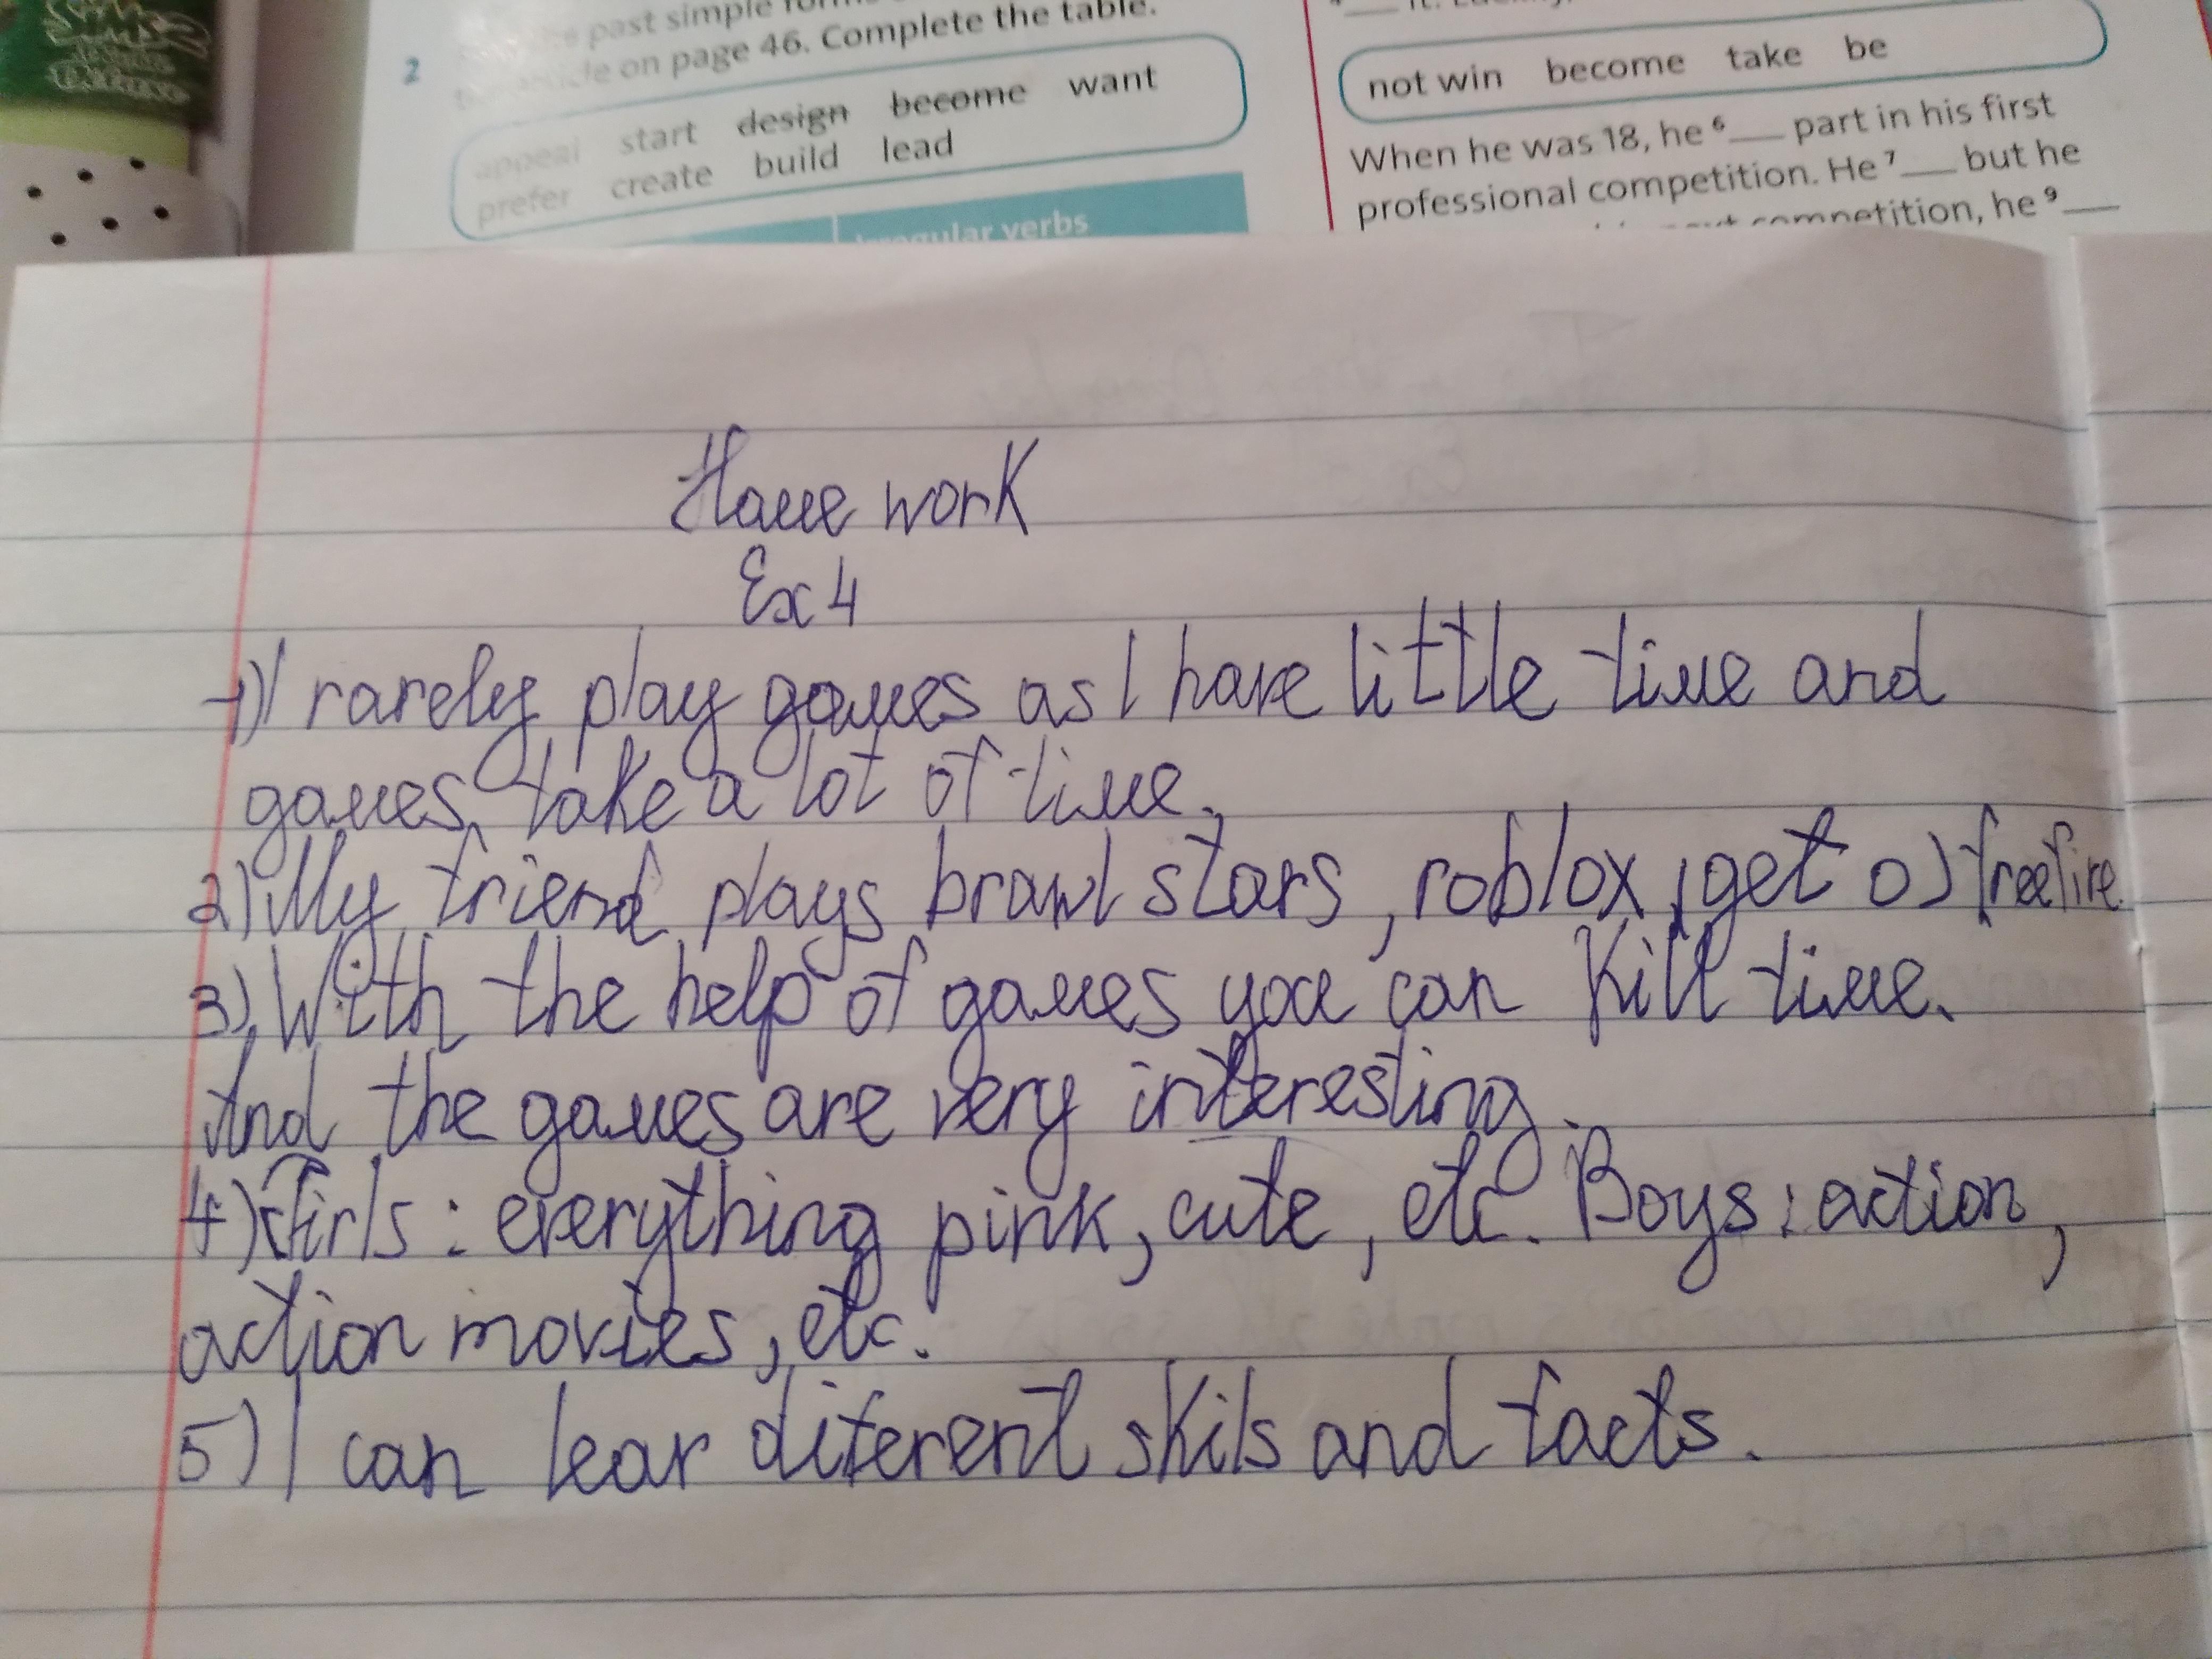 SiMS
2
past simple
on page 46. Complete the table.
appeal start design become want
prefer create build lead
Irregular verbs
not win become take be
When he was 18, he 6___ part in his first
professional competition. He 7___ but he
competition, he 9___
Home work
Ex 4
1) I rarely play games as I have little time and
games take a lot of time.
2) My friend plays brawl stars, roblox, get o) freefire
3) With the help of games you can kill time.
And the games are very interesting.
4) Girls: everything pink, cute, etc. Boys: action,
action movies, etc.
5) I can lear diferent skils and facts.